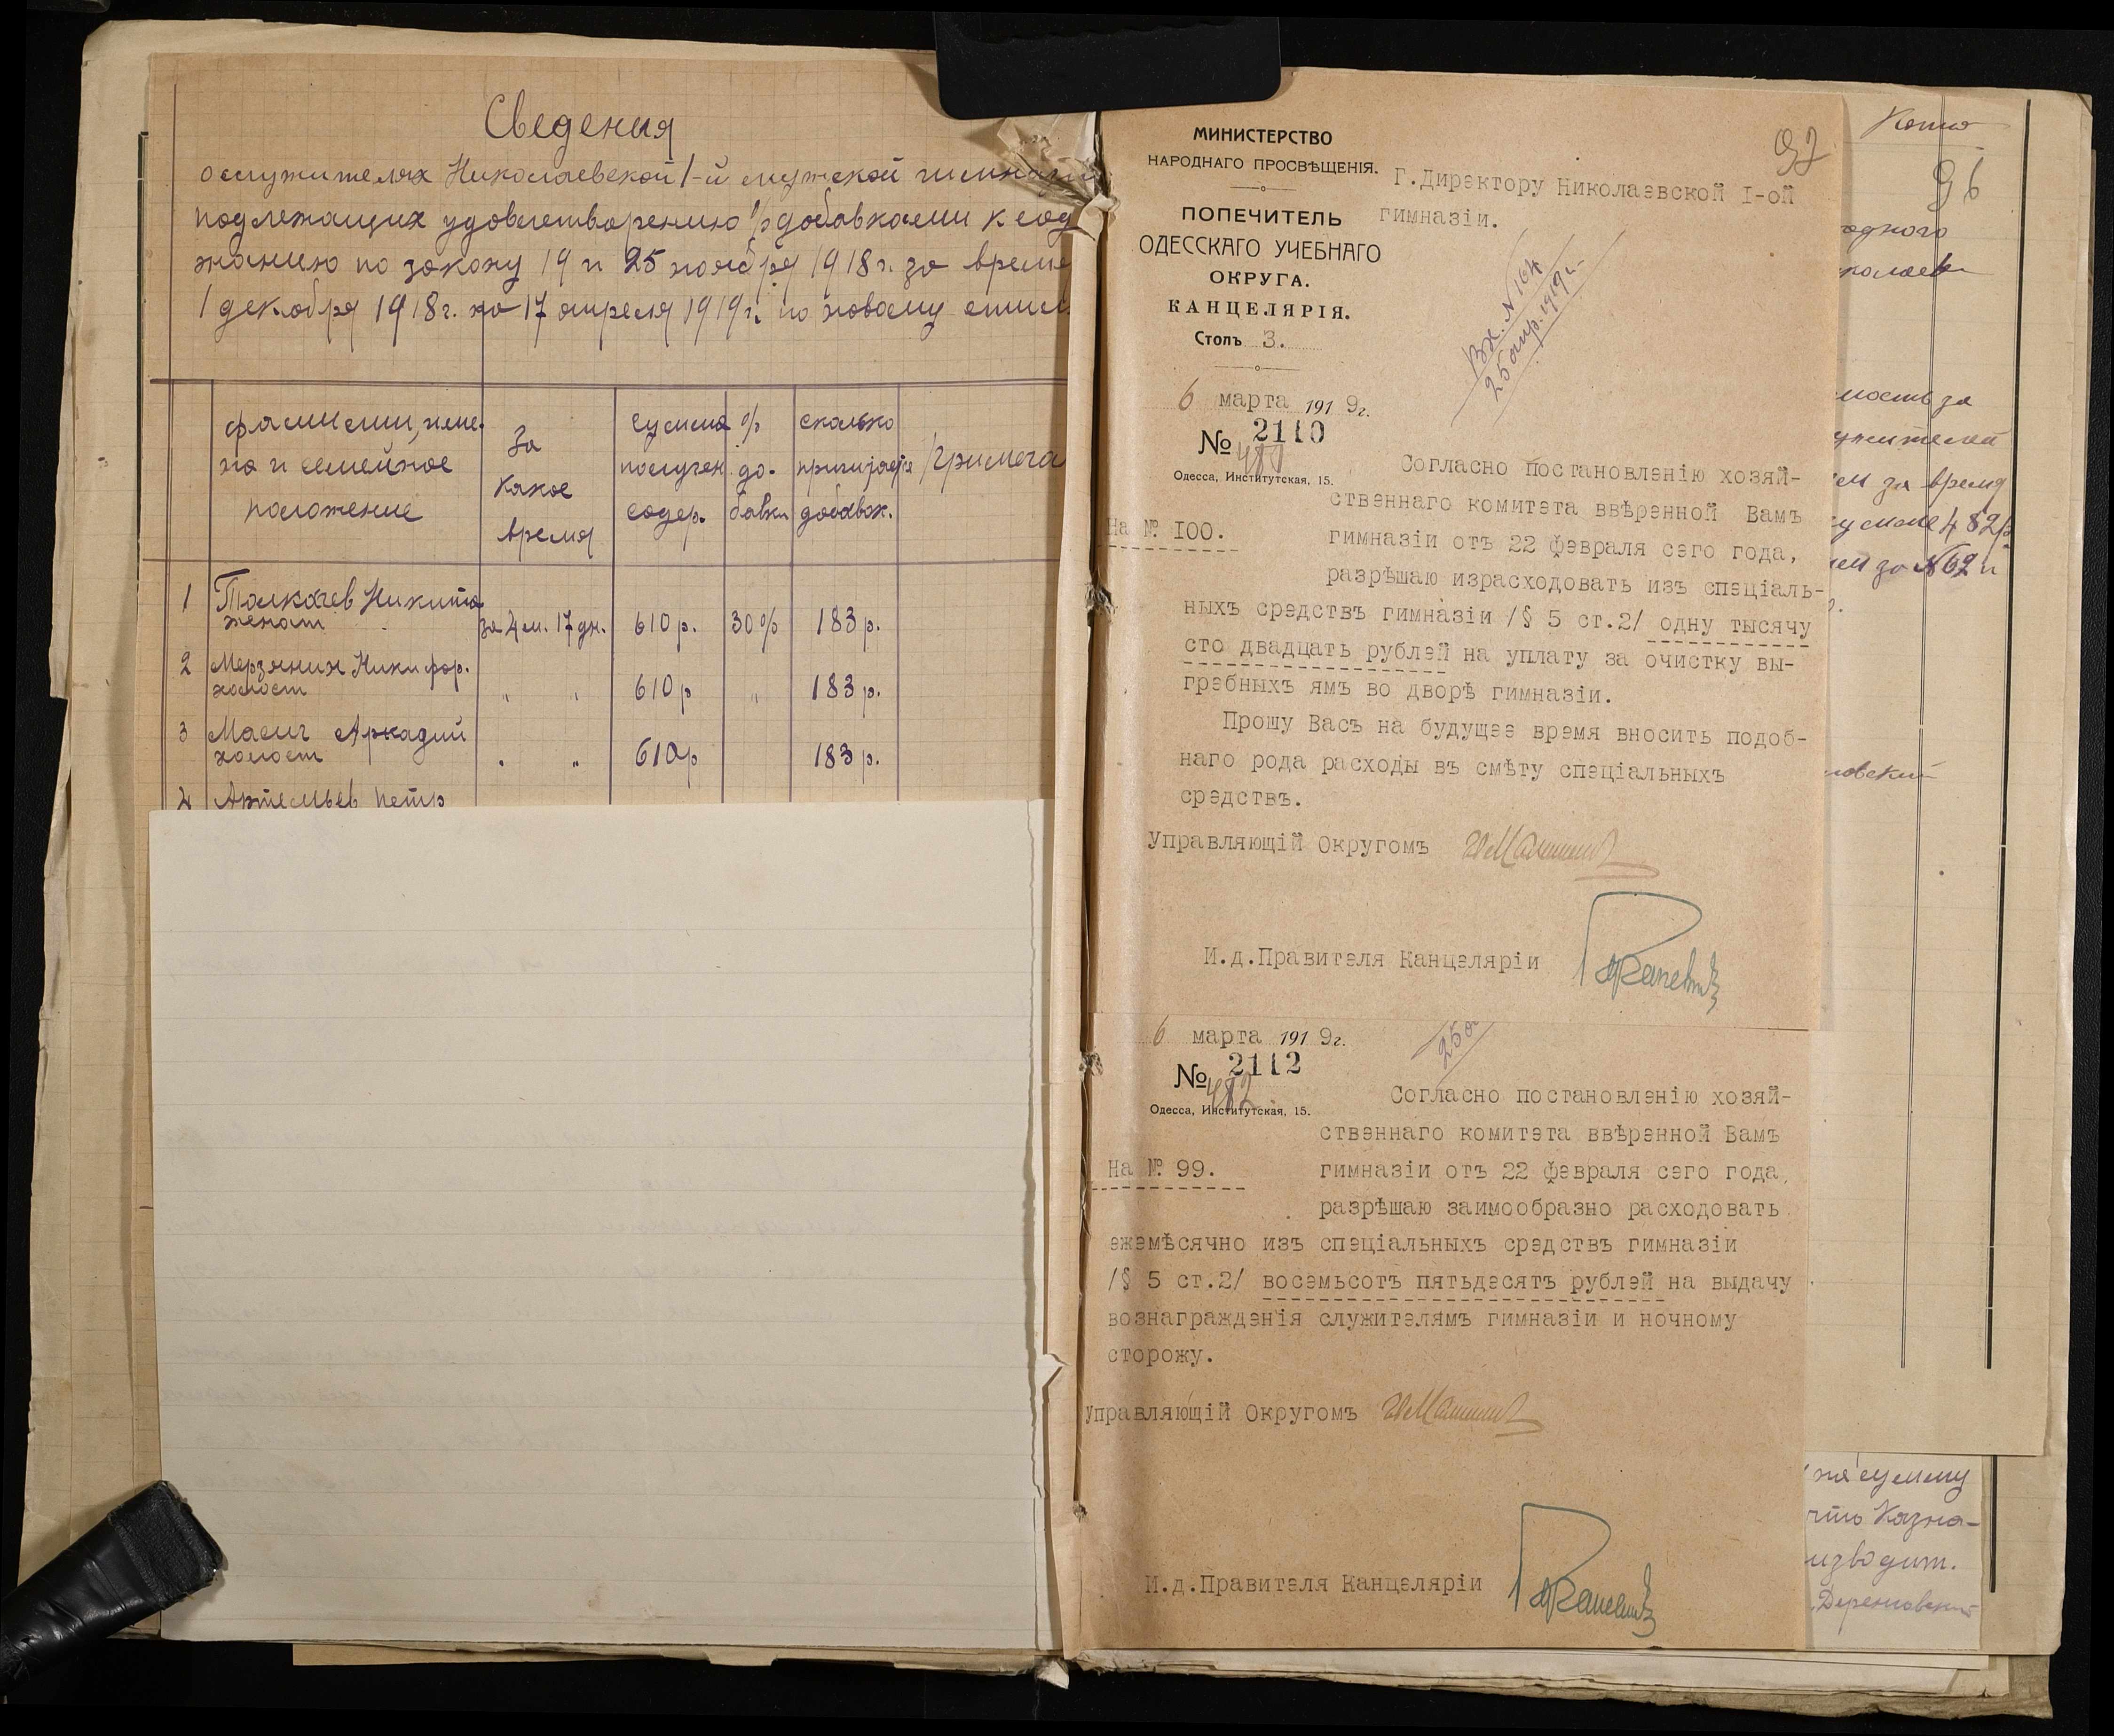 Сведения
о служителях Николаевской 1-й мужской гимнази
подлежащих удовлетворению % добавками к сод
жанию по закону 19 и 25 ноября 1918 г. за время
1 декабря 1918 г. по 17 апреля 1919 г. по новому стил
фамилии, име-
на и семейное
положение
За
какое
время
сумма
получен.
содер.
%
до-
бавки
сколько
причитается
добавок.
Примеча
1 Толкачев Никита
женат
за 4 м. 17 дн. 610 р. 30% 183 р.
2 Мерзяник Никифор.
холост
" " 610 р " 183 р.
3 Масич Аркадий
холост
" " 610 р 183 р.
4 Артемьев Петр
92
МИНИСТЕРСТВО
НАРОДНАГО ПРОСВѢЩЕНІЯ.
ПОПЕЧИТЕЛЬ
ОДЕССКАГО УЧЕБНАГО
ОКРУГА.
КАНЦЕЛЯРІЯ.
Столъ 3.
6 марта 1919г.
№ 2110
480
Одесса, Институтская, 15.
На № I00.
Г.Директору Николаевской I-ой
гимназіи.
Вх. N 164
25 апр. 1919 г.
Согласно постановленію хозяй-
ственнаго комитета ввѣренной Вамъ
гимназіи отъ 22 февраля сего года,
разрѣшаю израсходовать изъ спеціаль-
ныхъ средствъ гимназіи /§ 5 ст.2/ одну тысячу
сто двадцать рублей на уплату за очистку вы-
гребныхъ ямъ во дворѣ гимназіи.
Прошу Васъ на будущее время вносить подоб-
наго рода расходы въ смѣту спеціальныхъ
средствъ.
Управляющій Округомъ
И.д.Правителя Канцеляріи
6 марта 1919г.
№ 2112
482
Одесса, Институтская, 15.
На № 99.
25 а
Согласно постановленію хозяй-
ственнаго комитета ввѣренной Вамъ
гимназіи отъ 22 февраля сего года,
разрѣшаю заимообразно расходовать
ежемѣсячно изъ спеціальныхъ средствъ гимназіи
/§ 5 ст.2/ восемьсотъ пятьдесятъ рублей на выдачу
вознагражденія служителямъ гимназіи и ночному
сторожу.
Управляющій Округомъ
И.д.Правителя Канцеляріи
Копия
96
одного
колаев
мость за
ужителей
ем за время
сумме 482 р
ем за N 62 и
ловский
на сумму
что Казна-
изводит.
Дереновский